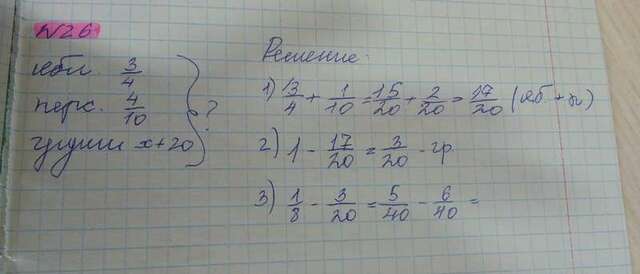 №26
ябл. 3/4
перс. 4/10
груши x+20
?
Решение.
1) 3/4 + 1/10 = 15/20 + 2/20 = 17/20 (яб. + п)
2) 1 - 17/20 = 3/20 - гр.
3) 1/8 - 3/20 = 5/40 - 6/40 =